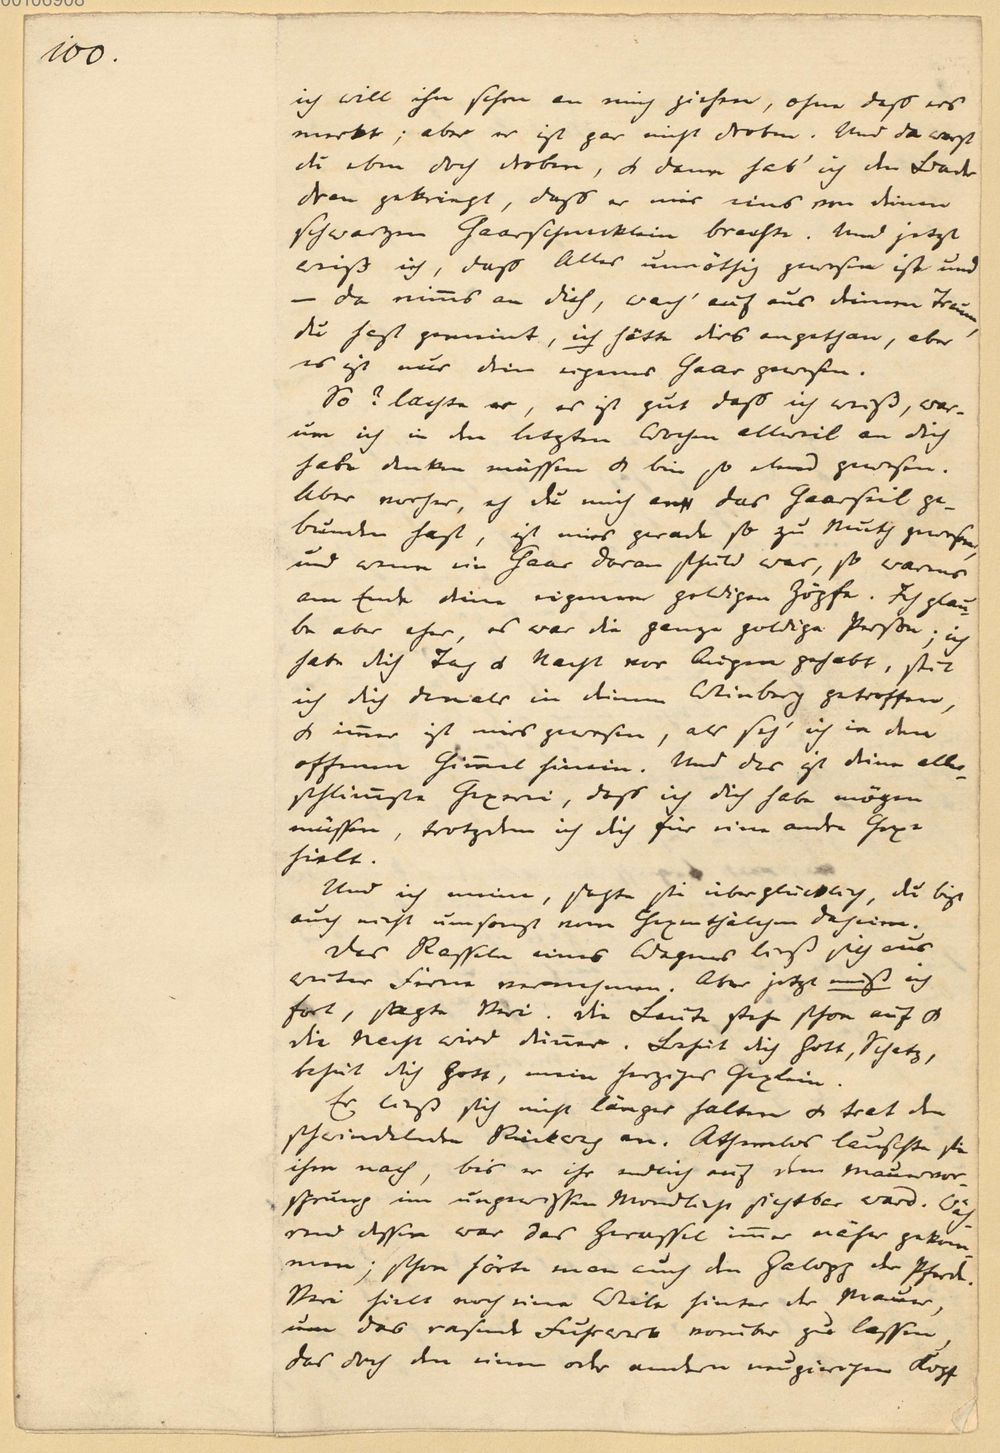 00106908
100.
ich will ihn schon an mich ziehen, ohne daß ers
merkt; aber er ist gar nicht droben. Und da warst
du eben doch droben, & dann hab' ich den Bader
dran gekriegt, daß er mir eins von deinen
schwarzen Haarschnecklein brachte. Und jetzt
weiß ich, daß Alles unnöthig gewesen ist und
— da nim̄s an dich, wach' auf aus deinem Traum,
du hast gemeint, ich hätte dirs angethan, aber
es ist nur dein eigenes Haar gewesen.
So? lachte er, es ist gut daß ich weiß, war-
um ich in den letzten Wochen allweil an dich
habe denken müssen & bin so elend gewesen.
Aber vorher, eh du mich an das Haarseil ge-
bunden hast, ist mirs gerade so zu Muth gewesen,
und wenn ein Haar daran schuld war, so warens
am Ende deine eigenen goldigen Zöpfe. Ich glau-
be aber eher, es war die ganze goldige Person; ich
habe dich Tag & Nacht vor Augen gehabt, seit
ich dich damals in deinem Weinberg getroffen,
& im̄er ist mirs gewesen, als seh' ich in den
offenen Him̄el hinein. Und das ist deine aller-
schlim̄ste Hexerei, daß ich dich habe mögen
müssen, trotzdem ich dich für eine andre Hexe
hielt.
Und ich meine, sagte sie überglücklich, du bist
auch nicht umsonst vom Hexenthälchen daheim.
Das Rasseln eines Wagens ließ sich aus
weiter Ferne vernehmen. Aber jetzt muß ich
fort, sagte Veri. Die Leute stehn schon auf &
die Nacht wird dün̄er. Behüt dich Gott, Schatz,
behüt dich Gott, mein herziges Hexlein.
Er ließ sich nicht länger halten & trat den
schwindelnden Rückweg an. Athemlos lauschte sie
ihm nach, bis er ihr endlich auf dem Mauervor-
sprung im ungewissen Mondlicht sichtbar ward. Wäh-
rend dessen war das Gerassel im̄er näher gekom-
men; schon hörte man auch den Galopp der Pferde.
Veri hielt noch eine Weile hinter der Mauer,
um das rasende Fuhrwerk vorüber zu lassen,
das doch den einen oder andern neugierigen Kopf